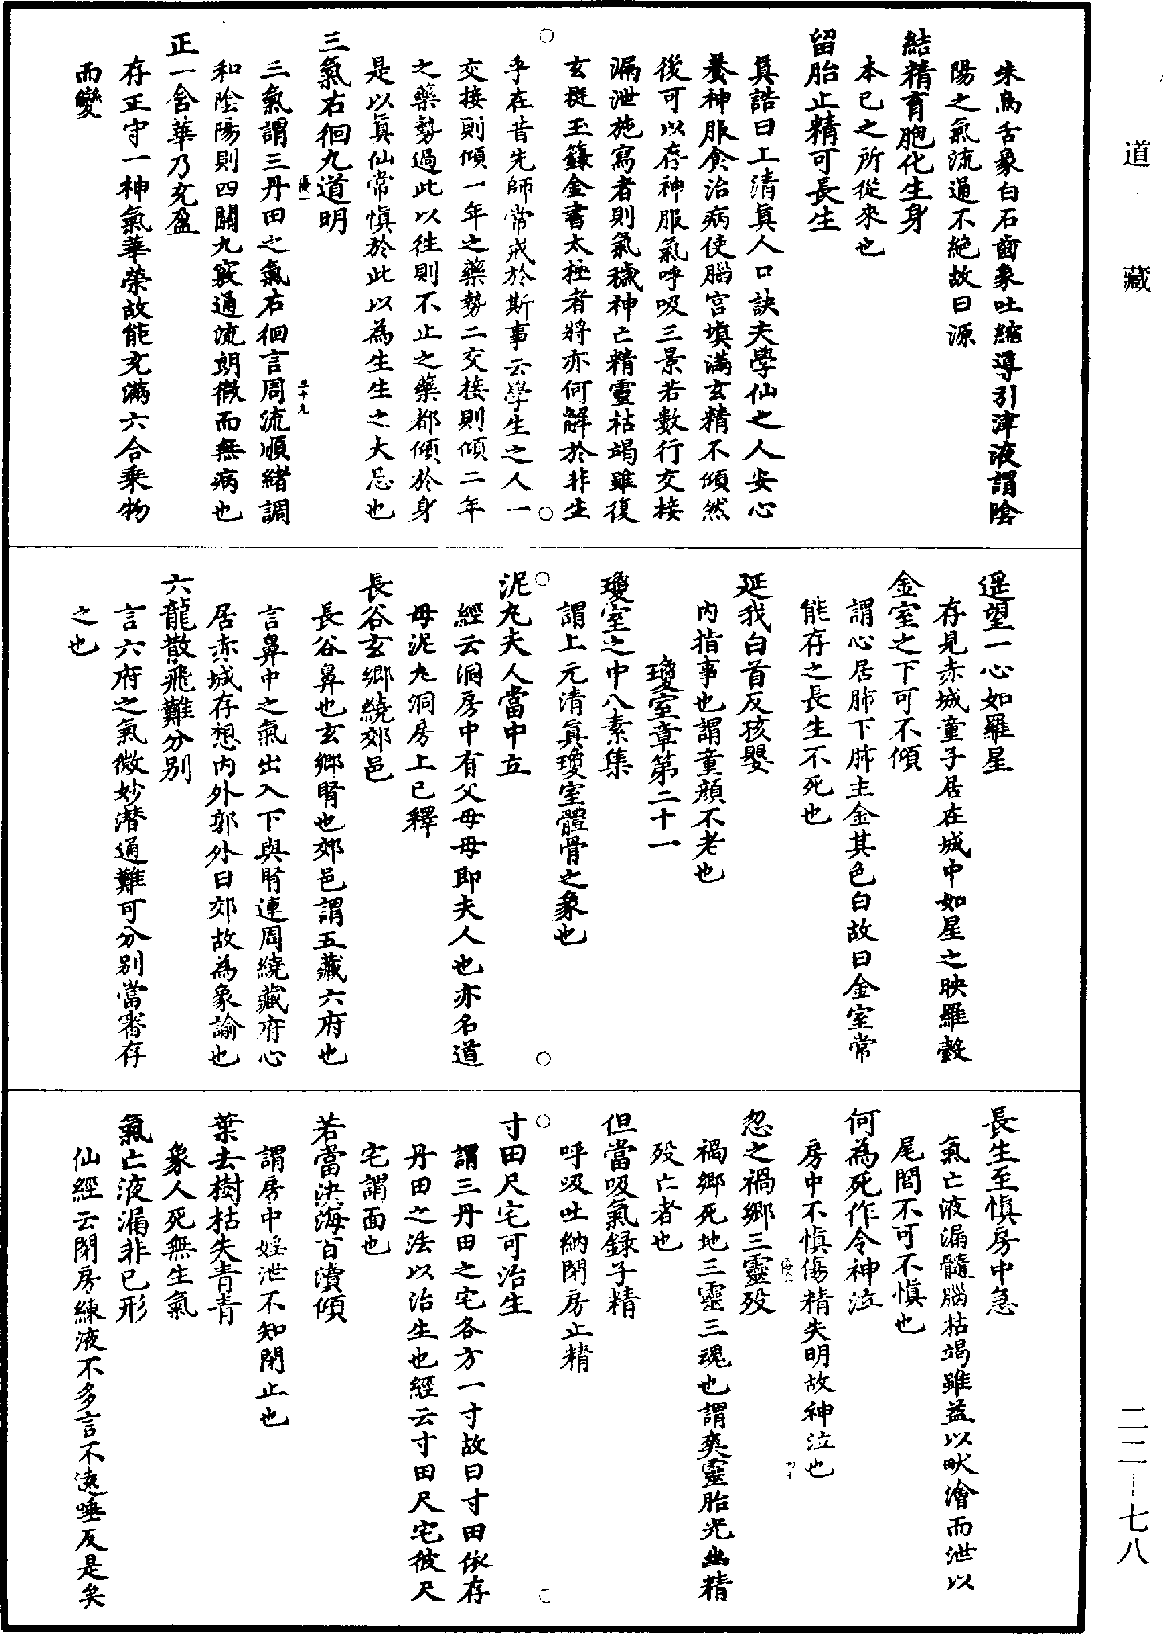 道藏
朱鳥舌象白石齒象吐縮導引津液謂陰
陽之氣流通不絕故曰源
結精育胞化生身
本己之所從來也
留胎止精可長生
真誥曰上清真人口訣夫學仙之人安心
養神服食治病使腦宮填滿玄精不傾然
後可以存神服氣呼吸三景若數行交接
漏泄施寫者則氣穢神亡精靈枯竭雖復
玄挺玉籙金書太極者將亦何解於非生
乎在昔先師常戒於斯事云學生之人一
交接則傾一年之藥勢二交接則傾二年
之藥勢過此以往則不止之藥都傾於身
是以真仙常慎於此以為生生之大忌也
三氣右徊九道明
三氣謂三丹田之氣右徊言周流順緒調
和陰陽則四關九竅通流朗徹而無病也
正一含華乃充盈
存正守一神氣華榮故能充滿六合乘物
而變
遥望一心如羅星
存見赤城童子居在城中如星之映羅縠
金室之下可不傾
謂心居肺下肺主金其色白故曰金室常
能存之長生不死也
延我白首反孩嬰
內指事也謂童顏不老也
瓊室章第二十一
瓊室之中八素集
謂上元清真瓊室體骨之象也
泥丸夫人當中立
經云洞房中有父母母即夫人也亦名道
母泥丸洞房上已釋
長谷玄鄉繞郊邑
長谷鼻也玄鄉腎也郊邑謂五藏六府也
言鼻中之氣出入下與腎連周繞藏府心
居赤城存想內外郭外曰郊故為象諭也
六龍散飛難分別
言六府之氣微妙潛通難可分別當審存
之也
長生至慎房中急
氣亡液漏髓腦枯竭雖益以畎澮而泄以
尾閭不可不慎也
何為死作令神泣
房中不慎傷精失明故神泣也
忽之禍鄉三靈歿
禍鄉死地三靈三魂也謂爽靈胎光幽精
歿亡者也
但當吸氣錄子精
呼吸吐納閉房止精
寸田尺宅可治生
謂三丹田之宅各方一寸故曰寸田依存
丹田之法以治生也經云寸田尺宅彼尺
宅謂面也
若當決海百瀆傾
謂房中婬泄不知閉止也
葉去樹枯失青青
象人死無生氣
氣亡液漏非已形
仙經云閉房練液不多言不遠唾反是矣
二二－七八